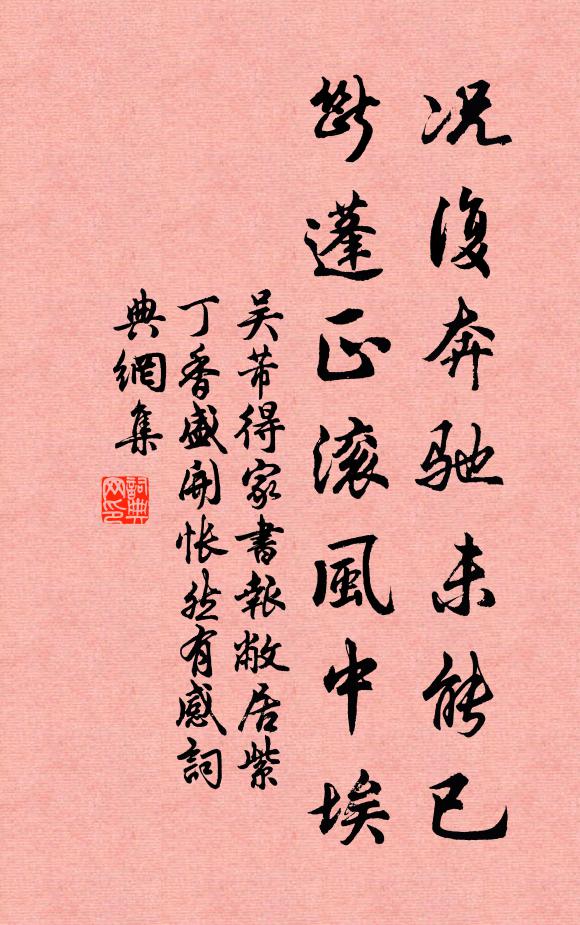 况復奔馳未能已
斷蓬正滚風中埃
吴芾得家書報敝居紫
丁香盛開悵然有感詞
典網集
詞典网印